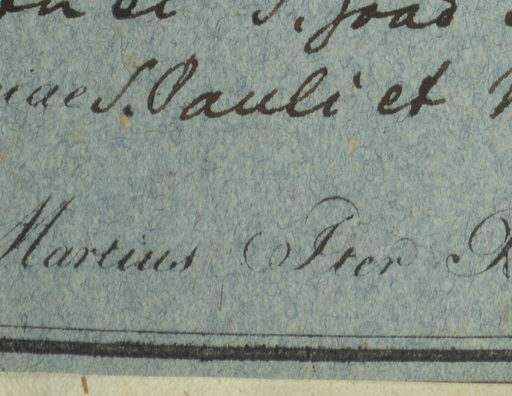 et S. Joao
iae S. Pauli et
Martius Iter